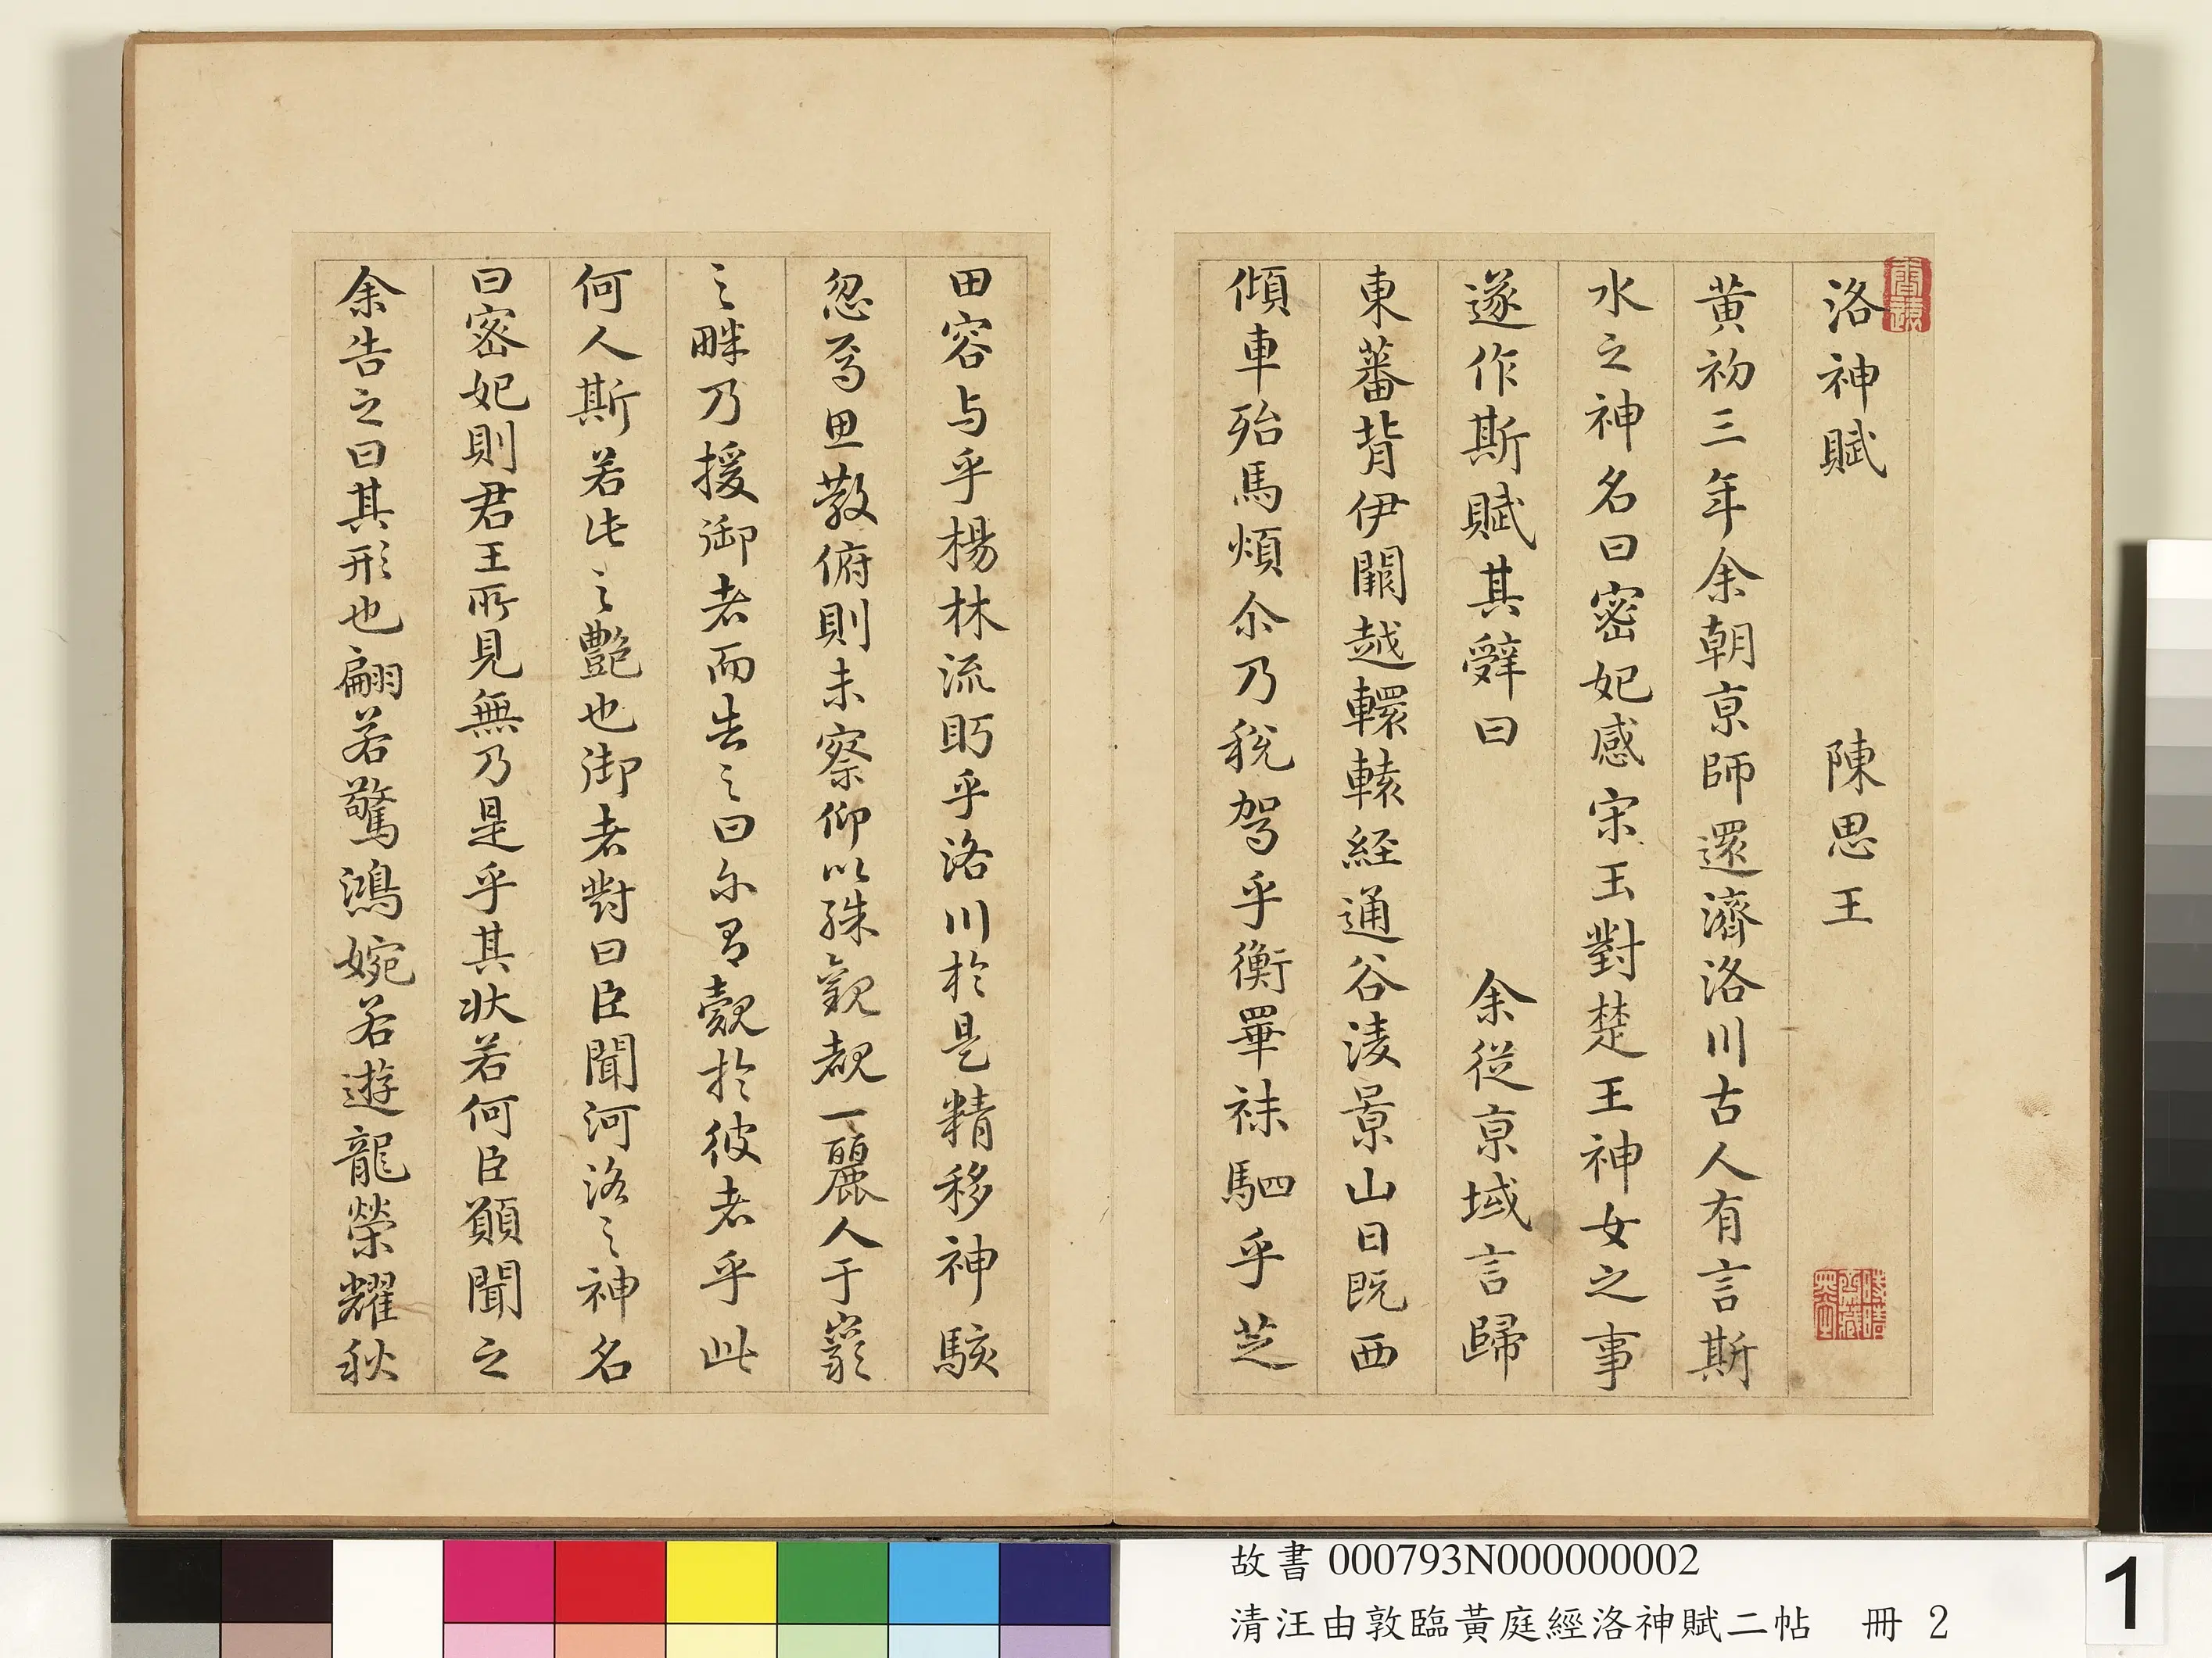 洛神賦 陳思王
黄初三年余朝京師還濟洛川古人有言斯
水之神名曰宓妃感宋玉對楚王神女之事
遂作斯賦其辭曰 余從京域言歸
東蕃背伊闕越轘轅経通谷淩景山日既西
傾車殆馬煩尒乃稅駕乎衡睪袜駟乎芝
田容与乎楊林流眄乎洛川於是精移神駭
忽焉思散俯則未察仰以殊觀覩一麗人于巖
之畔乃援御者而告之曰尔有覿於彼者乎此
何人斯若此之豔也御者對曰臣聞河洛之神名
曰宓妃則君王所見無乃是乎其状若何臣願聞之
余告之曰其形也翩若驚鴻婉若遊龍榮耀秋
故書 000793N000000002
清汪由敦臨黃庭經洛神賦二帖 冊 2
1